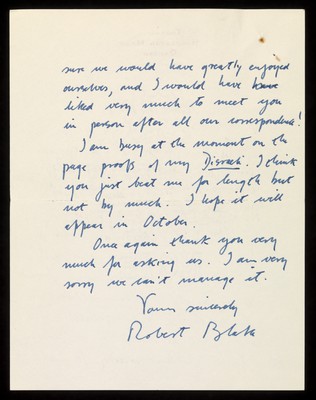 sure we would have greatly enjoyed
ourselves, and I would have have
liked very much to meet you
in person after all our correspondence!
I am busy at the moment on the
page proofs of my Disraeli. I think
you just beat me for length but
not by much. I hope it will
appear in October.
Once again thank you very
much for asking us. I am very
sorry we can't manage it.
Yours sincerely
Robert Blake